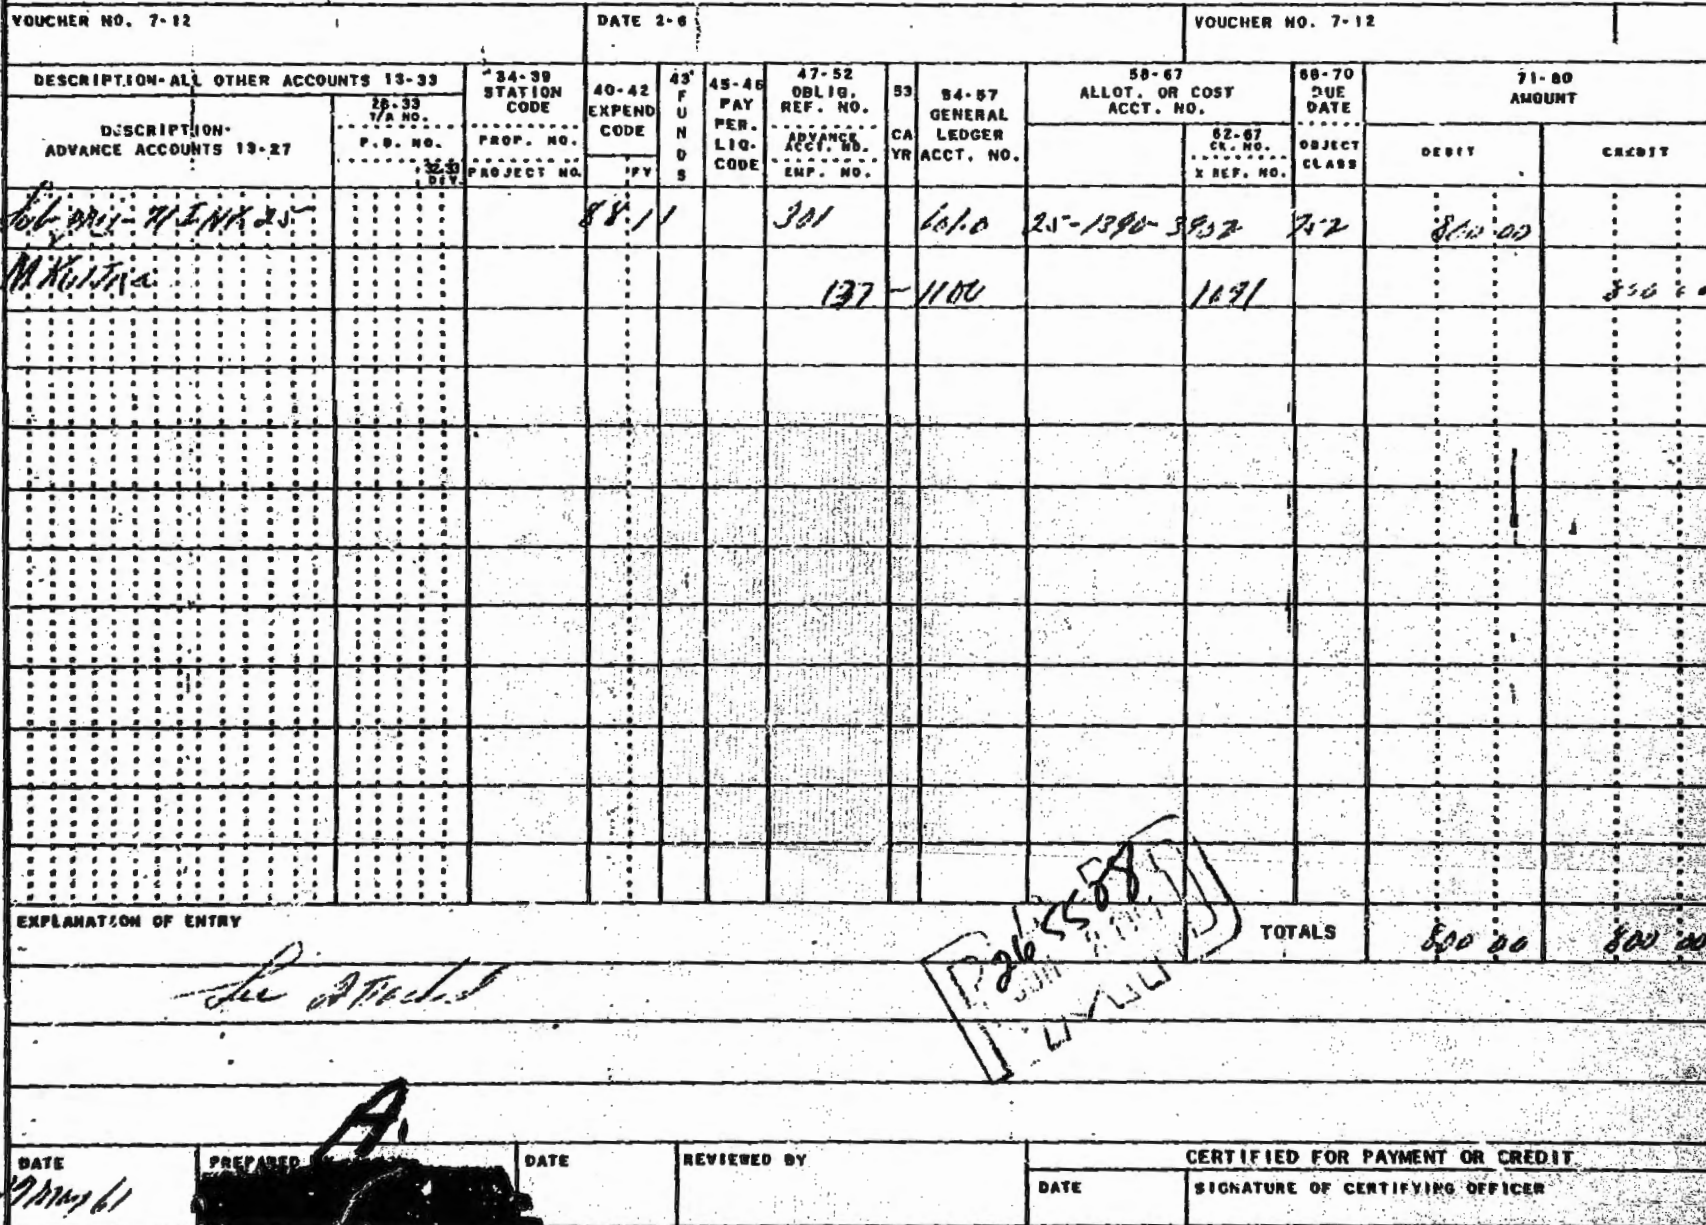 VOUCHER NO. 7-12 DATE 2-6 VOUCHER NO. 7-12
DESCRIPTION-ALL OTHER ACCOUNTS 13-33
DESCRIPTION-
ADVANCE ACCOUNTS 13-27
26-33
T/A NO.
P.O. NO.
32-33
DIV.
34-39
STATION
CODE
PROP. NO.
PROJECT NO.
40-42
EXPEND
CODE
FY
43
F
U
N
D
S
45-46
PAY
PER.
LIQ.
CODE
47-52
OBLIG.
REF. NO.
ADVANCE
ACCT. NO.
EMP. NO.
53
CA
YR
54-57
GENERAL
LEDGER
ACCT. NO.
58-67
ALLOT. OR COST
ACCT. NO.
62-67
CK. NO.
X REF. NO.
68-70
DUE
DATE
OBJECT
CLASS
71-80
AMOUNT
DEBIT CREDIT
301 25-1390-3902 752 800 00
MKULTRA
137 - 1100 1091
EXPLANATION OF ENTRY TOTALS 800 00 800 00
See attached
265528
A.
DATE PREPARED DATE REVIEWED BY CERTIFIED FOR PAYMENT OR CREDIT
61
DATE SIGNATURE OF CERTIFYING OFFICER